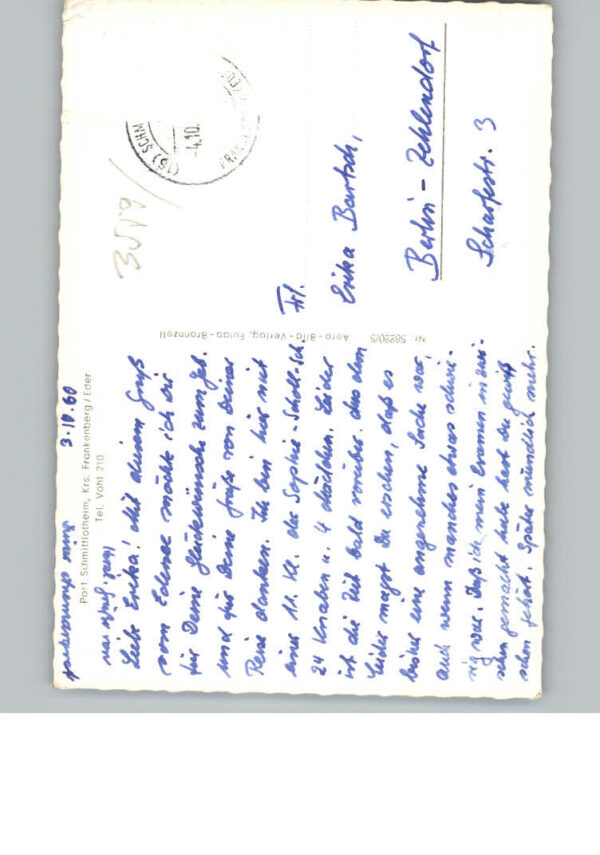 3.10.60
Post Schmittlotheim, Krs. Frankenberg/Eder
Tel. Vöhl 210
Liebe Erika! Mit diesem Gruß
vom Edersee möchte ich dir
für Deine Glückwünsche zum Geb.
und für Deine Grüße von Deiner
Reise danken. Ich bin hier mit
einer 11. Kl. der Sophie-Scholl-Sch.
24 Knaben u. 4 Mädchen. Leider
ist die Zeit bald vorüber. Aus dem
Leider magst Du ersehen, daß es
bisher eine angenehme Sache war,
auch wenn manches etwas schwie-
rig war. Daß ich mein Examen inzwi-
schen gemacht habe hast Du gewiß
schon gehört. Später mündlich mehr.
Nr. 58290/5 Aero-Bild-Verlag, Fulda-Bronnzell
(16) SCHM
-4.10.
Frl.
Erika Bartsch,
Berlin - Zehlendorf
Scharfestr. 3